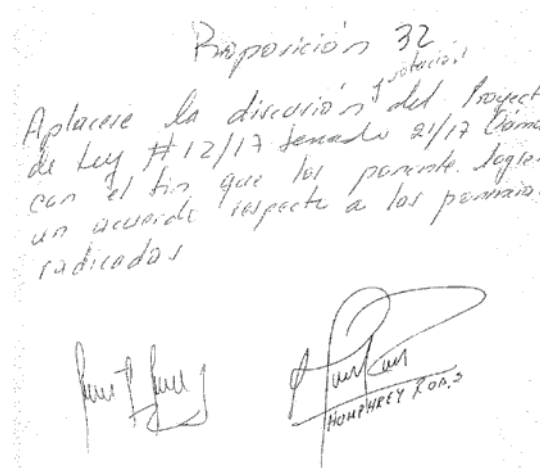 Proposición 32
y votación
Aplacese la discusión del Proyect
de Ley #12/17 Senado 21/17 Cáma
con el fin que los ponente logre
un acuerdo respecto a las ponencia
radicadas
HUMPHREY ROA.S